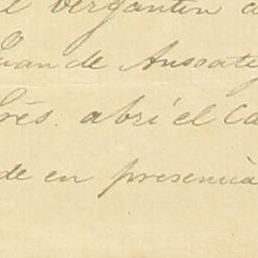 el bergantin
Juan de Ansoate
abri el Ca
de en presencia